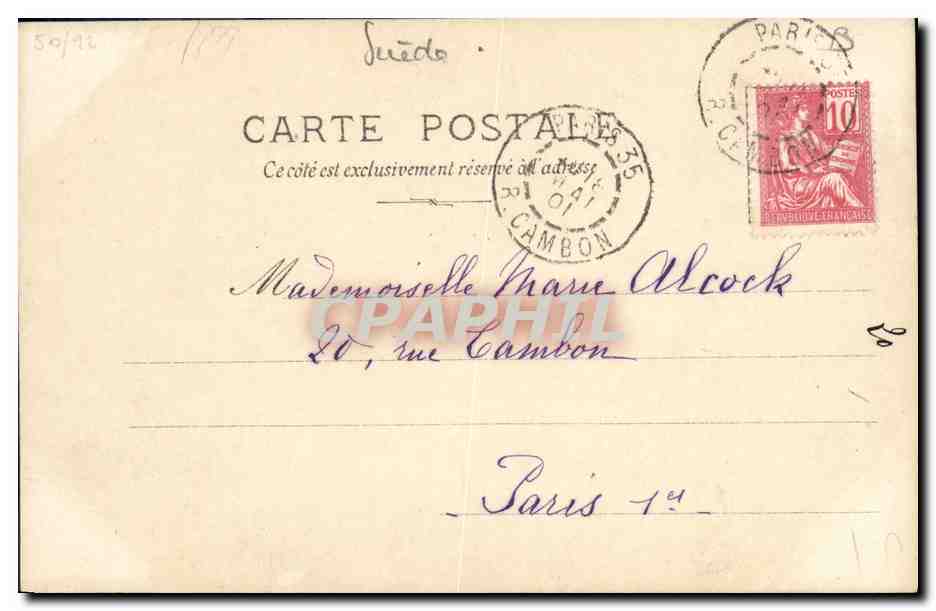 50/92
Suède
CARTE POSTALE
Ce côté est exclusivement réservé à l'adresse
PARIS 35
MAI
01
R. CAMBON
POSTES
10
REPUBLIQUE FRANÇAISE
Mademoiselle Marie Alcock
CPAPHIL
20, rue Cambon
20
Paris 1er